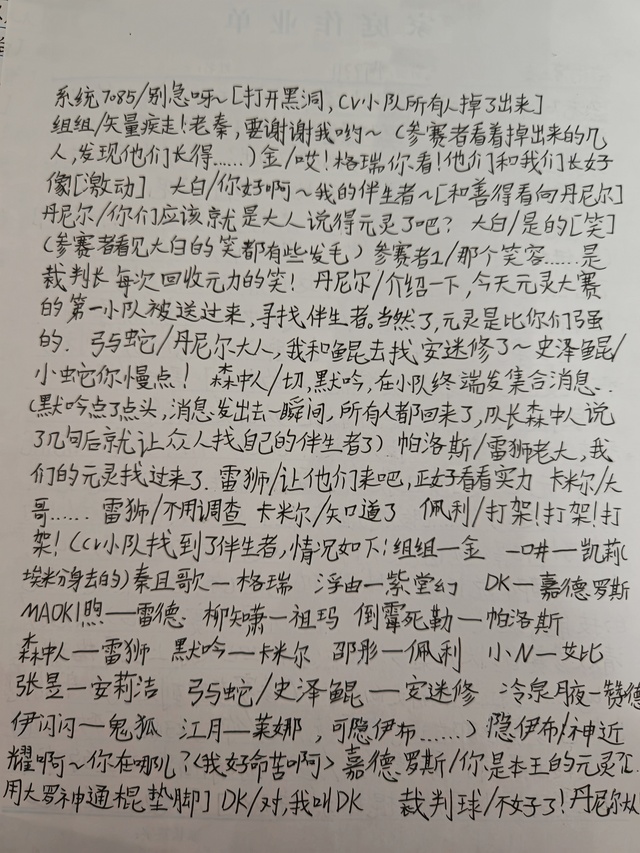 家庭作业单
系统7085/别急呀~[打开黑洞,CV小队所有人掉了出来]
组组/矢量疾走!老秦,要谢谢我哟~(参赛者看着掉出来的几
人,发现他们长得……)金/哎!格瑞你看!他们和我们长好
像[激动] 大白/你好啊~我的伴生者~[和善得看向丹尼尔]
丹尼尔/你们应该就是大人说得元灵了吧? 大白/是的[笑]
(参赛者看见大白的笑都有些发毛)参赛者1/那个笑容……是
裁判长每次回收元力的笑! 丹尼尔/介绍一下,今天元灵大赛
的第一小队被送过来,寻找伴生者。当然了,元灵是比你们强
的. 弓与蛇/丹尼尔大人,我和鲲去找安迷修了~史泽鲲/
小蛇你慢点! 森中人/切,默吟,在小队终端发集合消息..
(默吟点了点头,消息发出去一瞬间,所有人都回来了,队长森中人说
了几句后就让众人找自己的伴生者了) 帕洛斯/雷狮老大,我
们的元灵找过来了. 雷狮/让他们来吧,正好看看实力 卡米尔/大
哥…… 雷狮/不用调查 卡米尔/知道了 佩利/打架!打架!打
架!(CV小队找到了伴生者,情况如下:组组—金 一口井—凯莉(
埃米分身去的)秦且歌—格瑞 浮由—紫堂幻 DK—嘉德罗斯
MAOKI煦—雷德 柳知啸—祖玛 倒霉死勒—帕洛斯
森中人—雷狮 默吟—卡米尔 邵彤—佩利 小N—艾比
张昱—安莉洁 弓与蛇/史泽鲲—安迷修 冷泉月夜—赞德
伊闪闪—鬼狐 江月—莱娜,可隐伊布……)隐伊布/神近
耀啊~你在哪儿?(我好命苦啊) 嘉德罗斯/你是本王的元灵?[
用大罗神通棍垫脚] DK/对,我叫DK 裁判球/不好了!丹尼尔